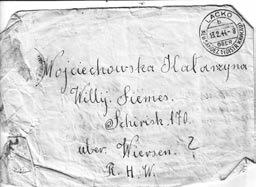 LACKO
b
13.2.44-8
Wojciechowska Katarzyna
Willÿ. Siemes.
Schirick 170.
über. Wiersen. ?
R. H. W.